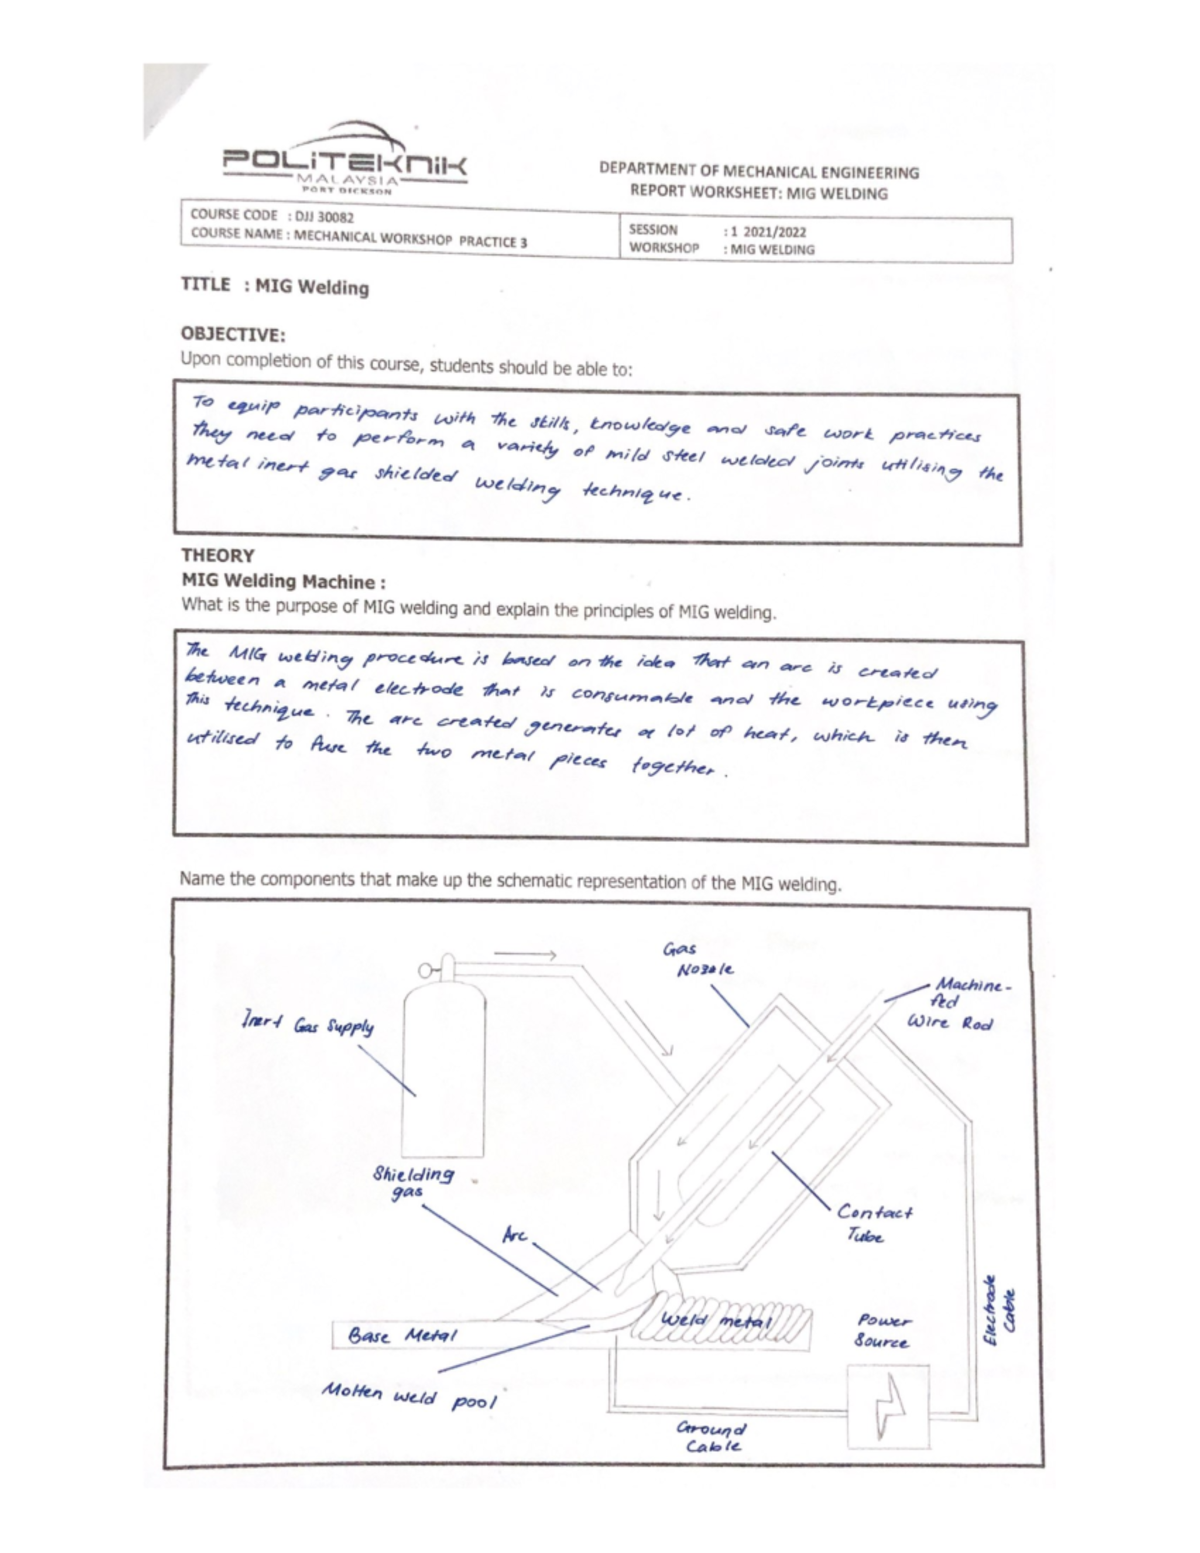 POLITEKNIK
MALAYSIA
PORT DICKSON
DEPARTMENT OF MECHANICAL ENGINEERING
REPORT WORKSHEET: MIG WELDING
COURSE CODE : DJJ 30082
COURSE NAME : MECHANICAL WORKSHOP PRACTICE 3
SESSION : 1 2021/2022
WORKSHOP : MIG WELDING
TITLE : MIG Welding
OBJECTIVE:
Upon completion of this course, students should be able to:
To equip participants with the skills, knowledge and safe work practices
they need to perform a variety of mild steel welded joints utilising the
metal inert gas shielded welding technique.
THEORY
MIG Welding Machine :
What is the purpose of MIG welding and explain the principles of MIG welding.
The MIG welding procedure is based on the idea that an arc is created
between a metal electrode that is consumable and the workpiece using
this technique. The arc created generates a lot of heat, which is then
utilised to fuse the two metal pieces together.
Name the components that make up the schematic representation of the MIG welding.
Gas
Nozzle
Machine-
fed
Wire Rod
Inert Gas Supply
Shielding
gas
Arc
Contact
Tube
Electrode
Cable
Weld metal
Power
Source
Base Metal
Molten weld pool
Ground
Cable